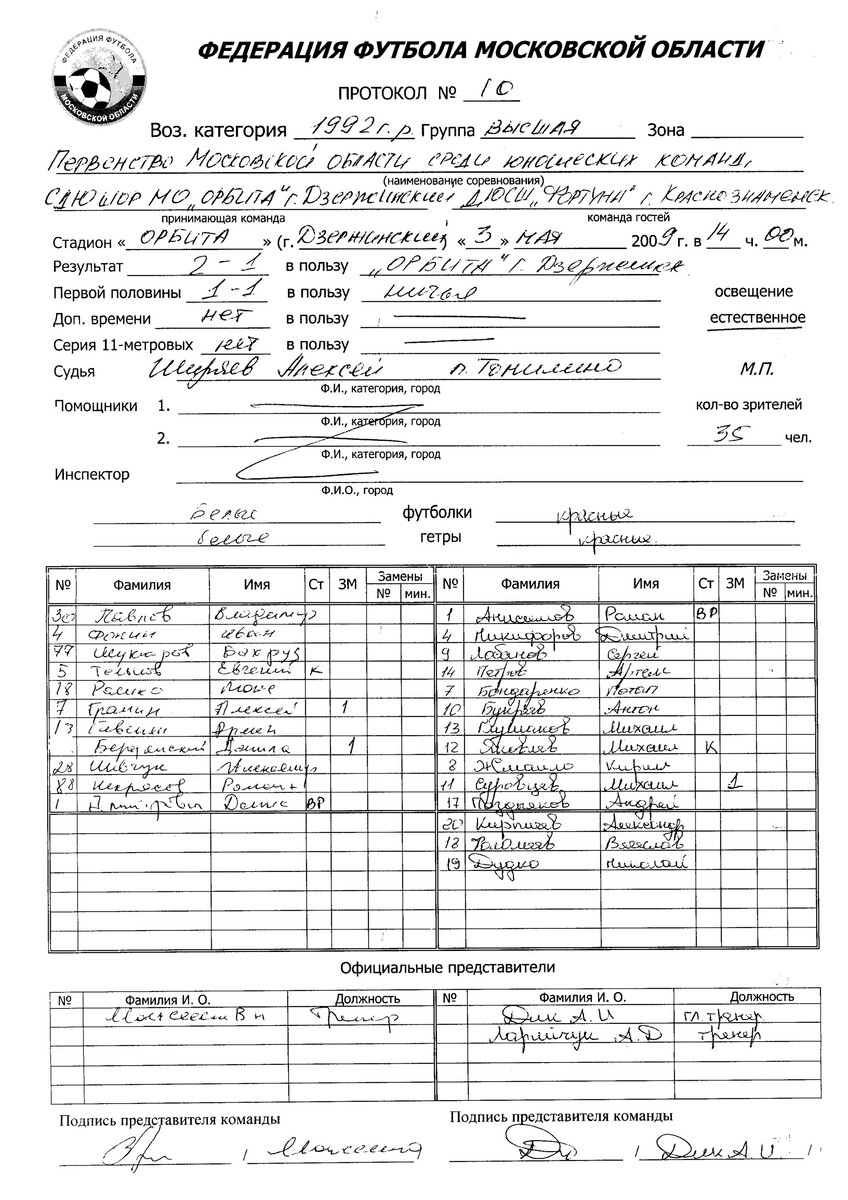 ФЕДЕРАЦИЯ ФУТБОЛА МОСКОВСКОЙ ОБЛАСТИ
ФЕДЕРАЦИЯ ФУТБОЛА МОСКОВСКОЙ ОБЛАСТИ
ПРОТОКОЛ № 10
Воз. категория 1992 г.р. Группа ВЫСШАЯ Зона
Первенство Московской области среди юношеских команд,
(наименование соревнования)
СДЮШОР МО „ОРБИТА" г. Дзержинский ДЮСШ „Фортуна" г. Краснознаменск
принимающая команда команда гостей
Стадион « ОРБИТА » (г. Дзержинский) « 3 » МАЯ 2009 г. в 14 ч. 00 м.
Результат 2 - 1 в пользу „ОРБИТА" г.
Первой половины 1-1 в пользу ничья освещение
Доп. времени нет в пользу естественное
Серия 11-метровых нет в пользу
Судья Ширяев Алексей п. Томилино М.П.
Ф.И., категория, город
Помощники 1. кол-во зрителей
Ф.И., категория, город
2. 35 чел.
Ф.И., категория, город
Инспектор
Ф.И.О., город
Белые футболки красные
белые гетры красные
№ Фамилия Имя Ст ЗМ Замены № мин. № Фамилия Имя Ст ЗМ Замены № мин.
30 Павлов Владимир 1 Анисимов Роман ВР
4 Фокин Иван 4 Никифоров Дмитрий
77 Шукюров 9 Лобанов Сергей
5 Евгений К 14 Петров Артем
18 7 Бондаренко Потап
7 Грамин Алексей 1 10 Антон
13 Армен 13 Михаил
Данила 1 12 Яковлев Михаил К
28 Шевчук Александр 8 Жмайло Кирилл
88 Некрасов Роман 11 Суровцев Михаил 1
1 Денис ВР 17 Поздняков Андрей
20 Кирпичев Александр
18 Вячеслав
19 Дудко Николай
Официальные представители
№ Фамилия И. О. Должность № Фамилия И. О. Должность
Тренер Дик А.И гл. тренер
А.Д тренер
Подпись представителя команды Подпись представителя команды
/ / Дик А.И. /